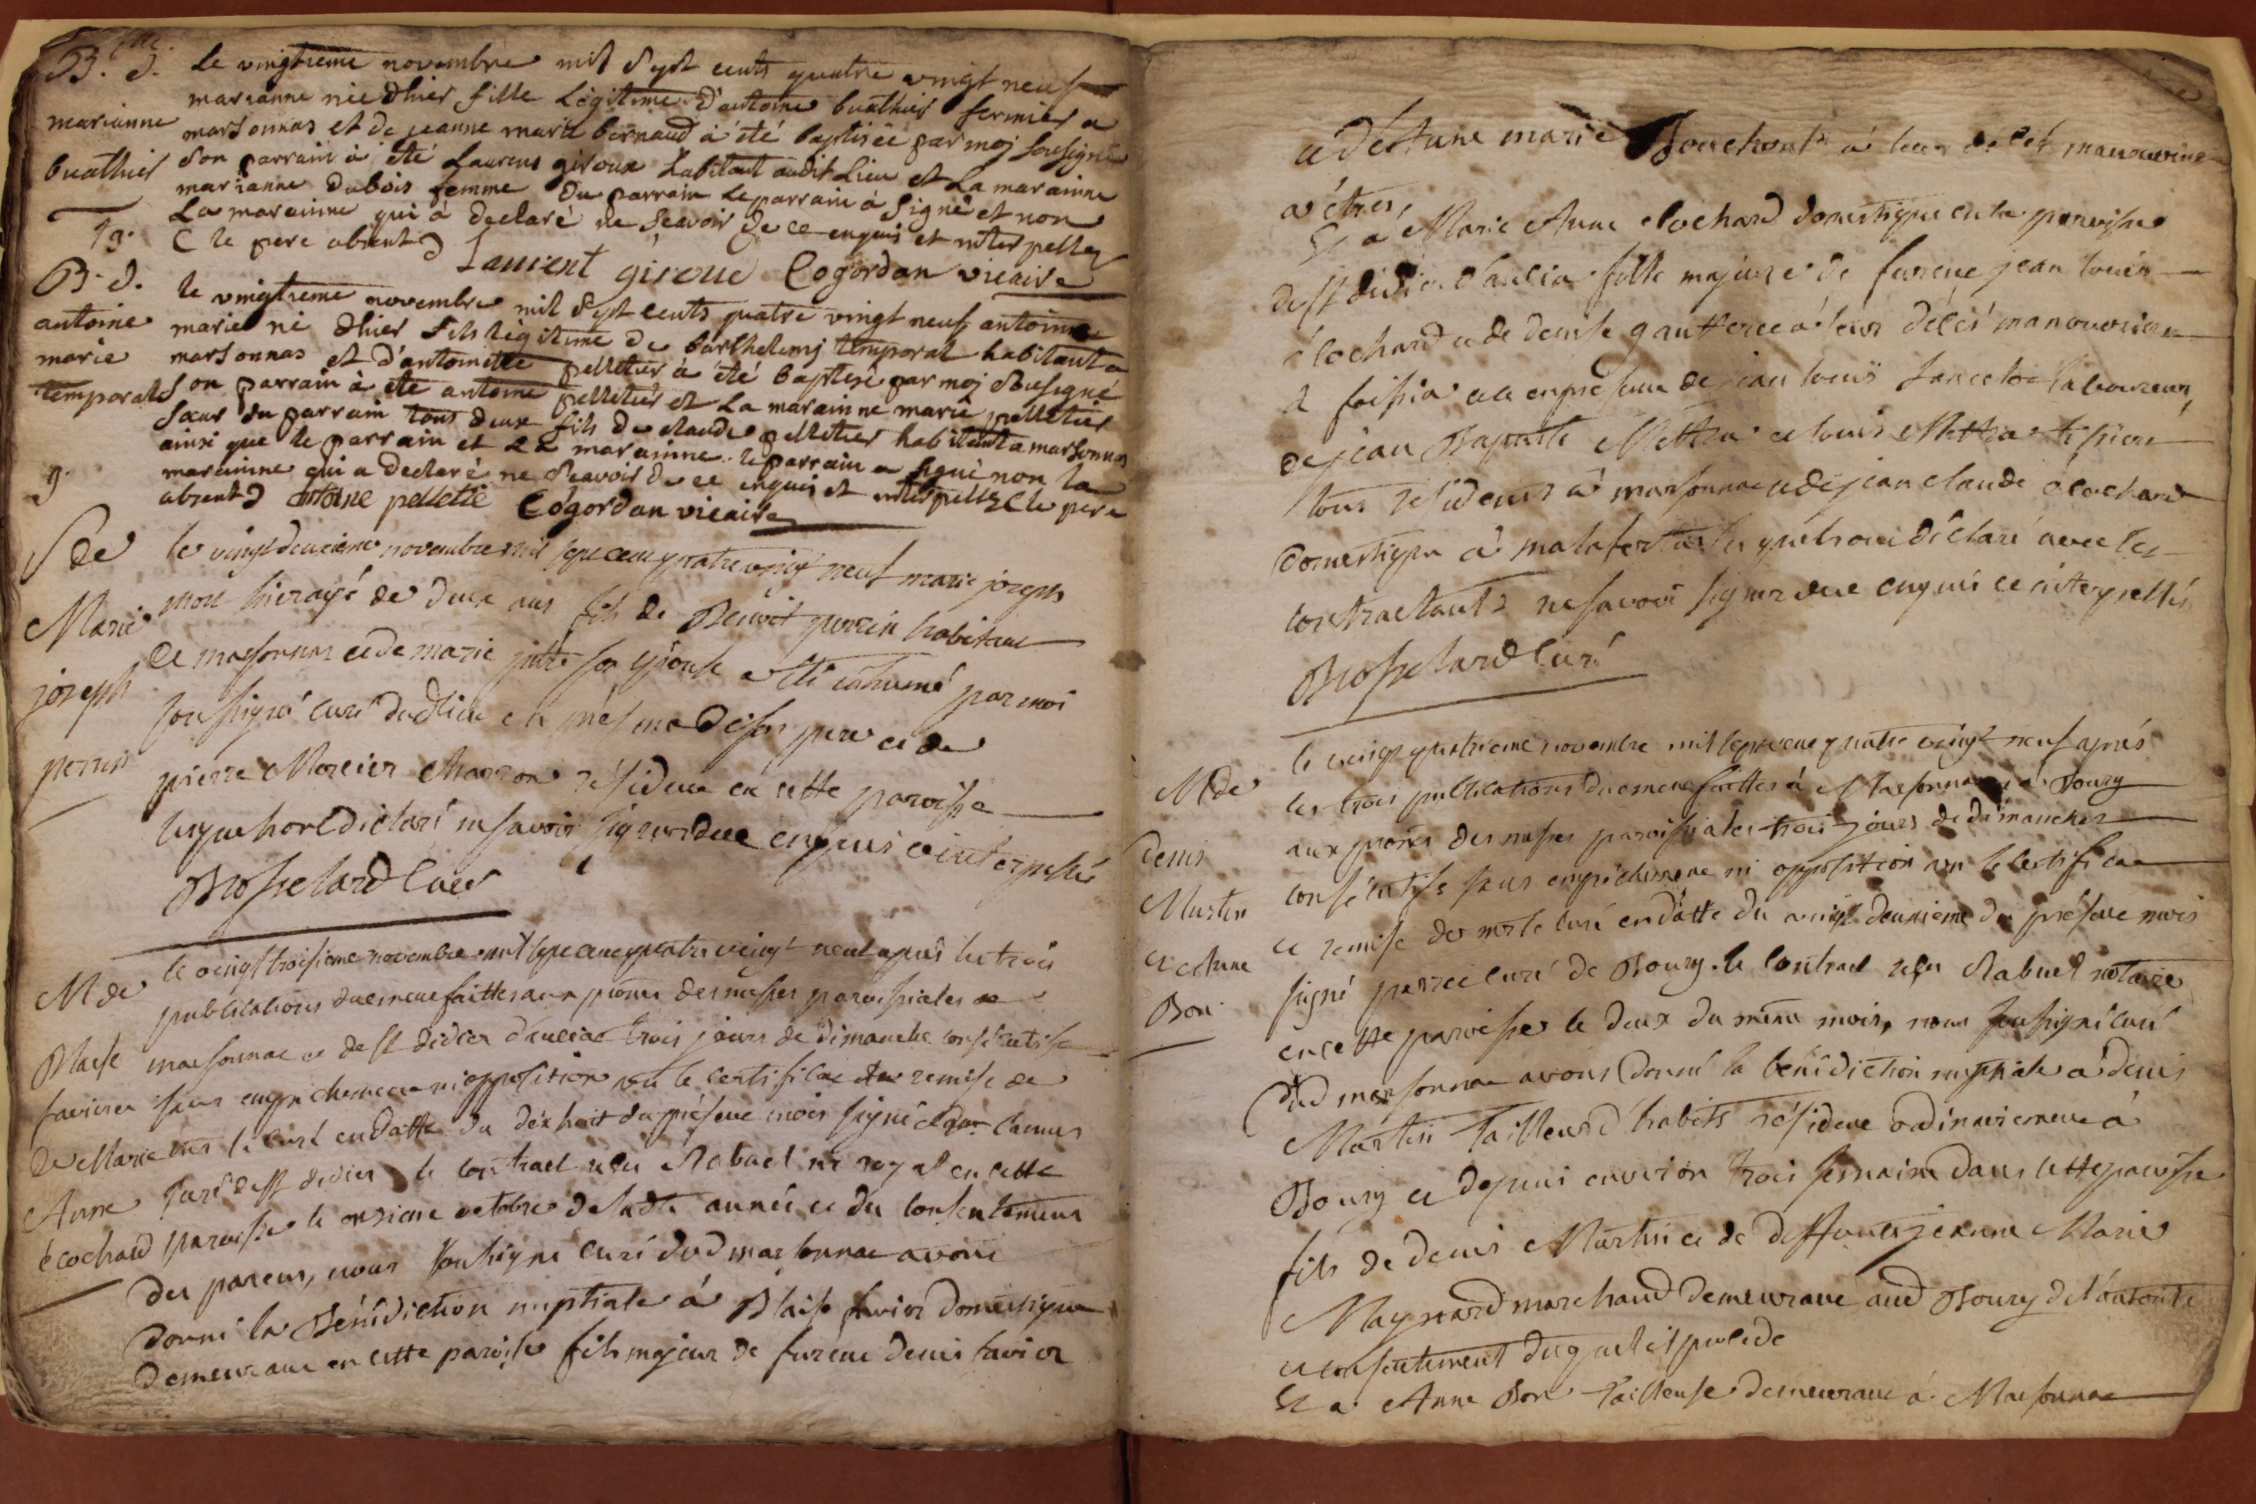 B. d.
marianne
buathier
19.
Le vingtieme novembre mil sept cents quatre vingt neuf
marianne née d'hier fille légitime d'antoine buathier fermier a
marsonnas et de jeanne marie bernaud a été baptisée par moj sousigné
son parrain à été Laurens giroux habitant audit Lieu et La marainne
marianne dubois femme du parrain Le parrain à signé et non
La marainne qui à declaré ne scavoir de ce enquis et interpellez
( le pere absent )
Laurent giroue Cogordan vicaire
B. d.
antoine
marie
temporal
g.
le vingtieme novembre mil sept cents quatre vingt neuf antoine
marie né d'hier fils légitime de barthelemj temporal habitant a
marsonnas et d'antoinette pelletier à été baptisé par moj sousigné
son parrain à été antoine pelletier et La marainne marie pelletier
sœur du parrain tous deux fils de claude pelletier habitant a marsonnas
ainsi que le parrain et La marainne. le parrain a signé non la
marainne qui a declaré ne scavoir de ce enquis et interpellez ( le pere
absent ) antoine pelletié Cogordan vicaire
S de
Marie
joseph
perrin
le vingt deuxieme novembre mil sept cent quatre vingt neuf marie joseph
mort hier agé de deux ans fils de Benoit perrin habitant
de marsonnas et de marie son epouse a été inhumé par moi
soussigné curé dudit lieu en presence de son pere et de
pierre Mercier charron résident en cette paroisse
lesquels ont déclaré ne savoir signer de ce enquis et interpellés
Brosselard Curé
M de
Blaise
favier
et Marie
Anne
écochard
le vingt troisieme novembre mil sept cent quatre vingt neuf après les trois
publications duement faittes aux prones des messes paroissiales de
marsonnas et de st didier d'aussiat trois jours de dimanche consécutifs
sans empechement ni opposition vu le certificat de remise de
mr le curé en datte du dix huit du présent mois signé
curé de st didier le contract reçu Rabuel nre royal en cette
paroisse le onzieme octobre de ladte année et du consentement
des parens, nous soussigné curé dud marsonnas avons
donné la Bénédiction nuptiale à Blaise favier domestique
demeurant en cette paroisse fils majeur de furent denis favier
et d'Anne marie Bouchoux à leur décès manouvriers
a étrez,
Et à Marie Anne écochard domestique en la paroisse
de st didier d'aussia fille majeure de furent jean louis
écochard et de denise gauthier à leur décès manouvriers
à foissia et en presence de jean louis laboureur,
de jean Baptiste Mettra et louis Mettra
tous résidents à marsonnas et de jean claude écochard
domestique à malafertas lesquels ont déclaré avec les
contractants ne savoir signer de ce enquis et interpellés
Brosselard Curé
M de
denis
Martin
et Anne
Bon
le vingt quatrieme novembre mil sept cent quatre vingt neuf après
les trois publications duement faittes à Marsonnas et à Bourg
aux prones des messes paroissiales trois jours de dimanches
consécutifs sans empechement ni opposition vu le certificat
et remise de mr le curé en datte du vingt deuxieme du présent mois
signé curé de Bourg. le contract reçu Rabuel notaire
en cette paroisse le deux du même mois, nous soussigné curé
dud marsonnas avons donné la bénédiction nuptiale à denis
Martin tailleur d'habits résident ordinairement à
Bourg et depuis environ trois semaine dans cette paroisse
fils de denis Martin et de deffunte jeanne Marie
Maynard marchand demeurant aud Bourg de l'autorité
et consentement duquel il procede
Et a Anne Bon tailleuse demeurant à Marsonnas